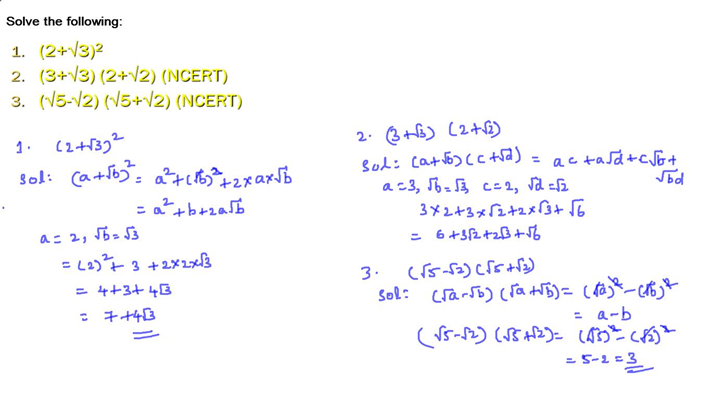 Solve the following:
1. (2+√3)²
2. (3+√3) (2+√2) (NCERT)
3. (√5-√2) (√5+√2) (NCERT)
1. (2+√3)²
Sol: (a+√b)² = a²+(√b)²+2×a×√b
= a²+b+2a√b
a=2, √b=√3
= (2)²+3+2×2×√3
= 4+3+4√3
= 7+4√3
2. (3+√3) (2+√2)
Sol: (a+√b)(c+√d) = ac+a√d+c√b+
√bd
a=3, √b=√3, c=2, √d=√2
3×2+3×√2+2×√3+√6
= 6+3√2+2√3+√6
3. (√5-√2)(√5+√2)
Sol: (√a-√b)(√a+√b)=(√a)²-(√b)²
= a-b
(√5-√2)(√5+√2)=(√5)²-(√2)²
=5-2=3